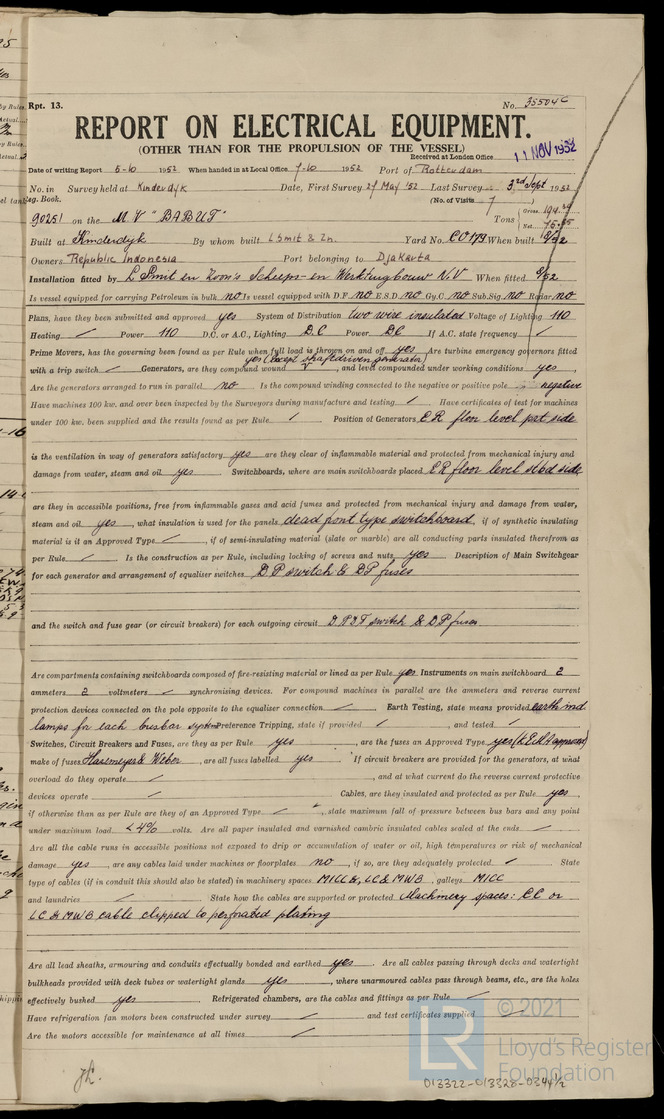 Rpt. 13. No. 35504C
REPORT ON ELECTRICAL EQUIPMENT.
(OTHER THAN FOR THE PROPULSION OF THE VESSEL)
Received at London Office 11 NOV 1952
Date of writing Report 5-10 1952 When handed in at Local Office 7-10 1952 Port of Rotterdam
No. in Survey held at Kinderdyk Date, First Survey 27 May '52 Last Survey 3rd Sept 1952
Reg. Book. (No. of Visits 7)
90251 on the M.V "BABUT" Tons Gross Net
Built at Kinderdyk By whom built L Smit & Zn. Yard No. CO 173 When built 8/52
Owners Republic Indonesia Port belonging to Djakarta
Installation fitted by L Smit en Zoon's Scheeps- en Werktuigbouw N.V When fitted 8/52
Is vessel equipped for carrying Petroleum in bulk no Is vessel equipped with D.F. no E.S.D. no Gy.C. no Sub.Sig. no Radar no
Plans, have they been submitted and approved yes System of Distribution two wire insulated Voltage of Lighting 110
Heating / Power 110 D.C. or A.C., Lighting DC Power DC If A.C. state frequency /
Prime Movers, has the governing been found as per Rule when full load is thrown on and off yes Are turbine emergency governors fitted
with a trip switch / Generators, are they compound wound yes (except shaft driven generator), and level compounded under working conditions yes,
Are the generators arranged to run in parallel no Is the compound winding connected to the negative or positive pole negative
Have machines 100 kw. and over been inspected by the Surveyors during manufacture and testing / Have certificates of test for machines
under 100 kw. been supplied and the results found as per Rule / Position of Generators ER floor level port side
is the ventilation in way of generators satisfactory yes are they clear of inflammable material and protected from mechanical injury and
damage from water, steam and oil yes Switchboards, where are main switchboards placed ER floor level stbd side
are they in accessible positions, free from inflammable gases and acid fumes and protected from mechanical injury and damage from water,
steam and oil yes, what insulation is used for the panels dead front type switchboard, if of synthetic insulating
material is it an Approved Type /, if of semi-insulating material (slate or marble) are all conducting parts insulated therefrom as
per Rule / Is the construction as per Rule, including locking of screws and nuts yes Description of Main Switchgear
for each generator and arrangement of equaliser switches DP switch & DP fuses
and the switch and fuse gear (or circuit breakers) for each outgoing circuit DPDT switch & DP fuses
Are compartments containing switchboards composed of fire-resisting material or lined as per Rule yes Instruments on main switchboard 2
ammeters 2 voltmeters / synchronising devices. For compound machines in parallel are the ammeters and reverse current
protection devices connected on the pole opposite to the equaliser connection / Earth Testing, state means provided earth ind
lamps for each busbar system Preference Tripping, state if provided /, and tested /
Switches, Circuit Breakers and Fuses, are they as per Rule yes, are the fuses an Approved Type yes (KEMA approved)
make of fuses Hazemeyer & Weber, are all fuses labelled yes If circuit breakers are provided for the generators, at what
overload do they operate /, and at what current do the reverse current protective
devices operate / Cables, are they insulated and protected as per Rule yes,
if otherwise than as per Rule are they of an Approved Type /, state maximum fall of pressure between bus bars and any point
under maximum load <4% volts. Are all paper insulated and varnished cambric insulated cables sealed at the ends /
Are all the cable runs in accessible positions not exposed to drip or accumulation of water or oil, high temperatures or risk of mechanical
damage yes, are any cables laid under machines or floorplates no, if so, are they adequately protected / State
type of cables (if in conduit this should also be stated) in machinery spaces MICC &, LC & MWB, galleys MICC
and laundries / State how the cables are supported or protected Machinery spaces: CC or
LC & MWB cable clipped to perforated plating
Are all lead sheaths, armouring and conduits effectually bonded and earthed yes. Are all cables passing through decks and watertight
bulkheads provided with deck tubes or watertight glands yes, where unarmoured cables pass through beams, etc., are the holes
effectively bushed yes Refrigerated chambers, are the cables and fittings as per Rule /
Have refrigeration fan motors been constructed under survey / and test certificates supplied /
Are the motors accessible for maintenance at all times /
© 2021
LR
Lloyd's Register
Foundation
013322-013328-0344 1/2